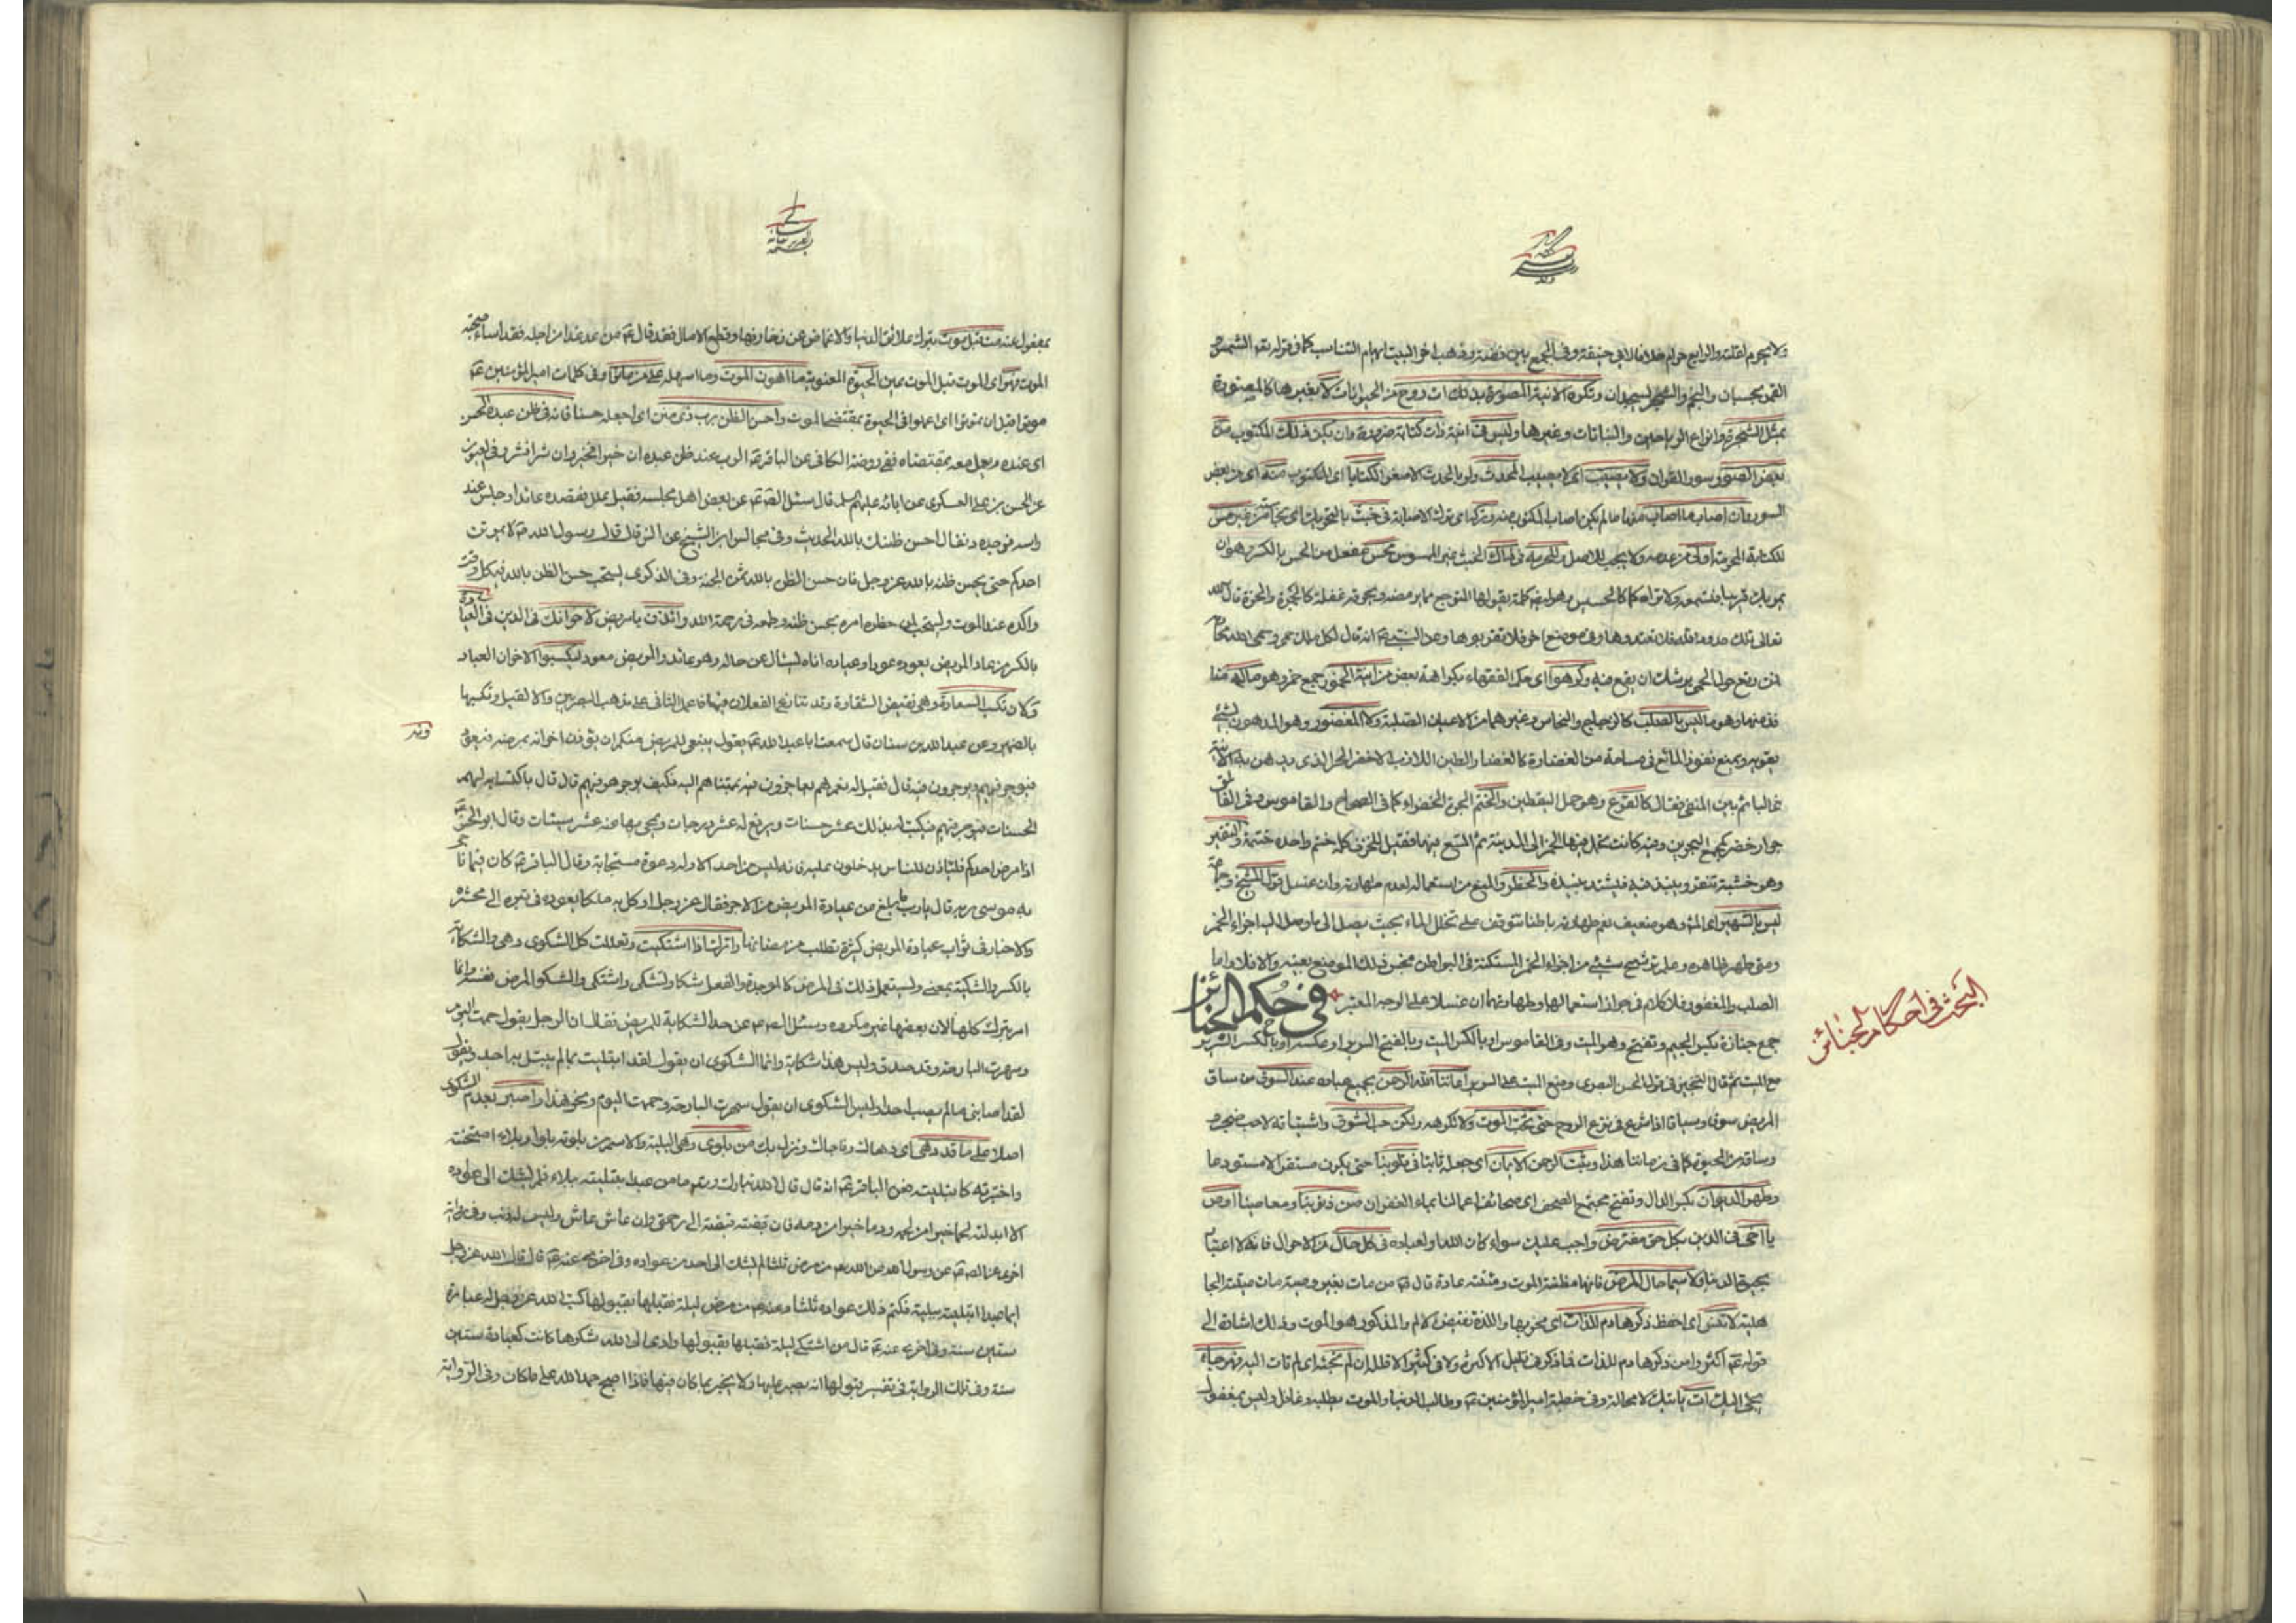 ولا يحرم اعلته والرابع حرام خلافا لابي حنيفة وفي الجمع بين فضة وذهب اخر البيت ايهام التناسب كما في قوله تعم الشمس و
القمر بحسبان والنجم والشجر يسجدان وتكره الانية المصورة بذلك ات روح من الحيوانات لا بغيرها كالمصورة
بمثل الشجرة وانواع الرياحين والنباتات وغيرها وليس في انية ذات كتابة ضرورة وان يكن ذلك المكتوب من
بعض السور سور القران ولا يصيب اي لا يصيب المحدث ولو بالحدث الاصغر الكتابا اي المكتوب منه اي من بعض
السور وان اصاب ما اصاب منها ما لم يكن اصاب المكتوب منه وتركه اي ترك الاصابة في خبث بالتحريك اي نجاسة غير مس
للكتابة المحرمة اولى من عدمه ولا يجب للاصل والحرمة في امساك الخبث بغير الممسوس بحس مفعل من الحس بالكسر وهو ان
يمر بك قريبا فتسمعه ولا تراه كما كالحسيس وهو ايضا كلمة يقولها المتوجع مما يرمضه ويحرقه غفلة كالجمرة والحرة قال الله
تعالى تلك حدود الله فلا تعتدوها وفي موضع اخر فلا تقربوها وعن النبي ص انه قال لكل ملك حمى وحمى الله محارمه
فمن رتع حول الحمى يوشك ان يقع فيه وكرهوا اي حكم الفقهاء بكراهة بعض من انية الخمور جمع خمر وهو ما كره منا
فذ منها وهو ما ليس بالصلب كالزجاج والنحاس وغيرهما من الاعيان الصلبة ولا المغضور وهو المدهون بشئ
يقويه ويمنع نفوذ المائع في مسامه من الغضارة كالغضار والطين اللازب الاخضر الحر الذي يدهن به الانية
غالبا ثم بين المنفي فقال كالقرع وهو حمل اليقطين والختم الجرة الخضراء كما في الصحاح والقاموس وفي الفائق
جرار خضر كجمع البحرين وفيه كانت تحمل فيها الخمر الى المدينة ثم اتسع فيها فقيل للخزف كله ختم واحده ختمة والنقير
وهو خشبة تنقر وينبذ فيه فيشتد نبيذه والحظر والمنع من استعماله لعدم طهارته وان غسل قول الشيخ وجماعة
ليس بالشهير اي المش وهو ضعيف نعم طهارته باطنا تتوقف على تخلل الماء بحيث يصل الى ما وصل اليه اجزاء الخمر
ومتى طهر ظاهره وعلم ترشح شئ من اجزاء الخمر المستكنة في البواطن نجس ذلك الموضع بعينه والا فلا واما
الصلب والمغضور فلا كلام في جواز استعمالهما وطهارتهما ان غسلا على الوجه المعتبر في حكم الجنائز
جمع جنازة بكسر الجيم وتفتح وهو الميت وفي القاموس او بالكسر الميت وبالفتح السرير او عكسه او بالكسر السرير
مع الميت ثم قال التجهيز في قول الحسن البصري وضع الميت على السرير اماتنا الله الرحمن بجميع عباده عند السوق من ساق
المريض سوقا وسياقا اذا شرع في نزع الروح حتى نحب الموت ولا نكرهه ولكن حب الشوق واشتياقه لا حب ضجر و
وساقه من الحيوة كما في زماننا هذا ويثبت الرحمن الايمان اي جعله ثابتا في قلوبنا حتى يكون مستقرا لا مستودعا
وطهر الديوان بكسر الدال وتفتح مجتمع الصحف اي صحائف اعمالنا بماء الغفران من ذنوبنا ومعاصينا اوص
يا اخي في الدين بكل حق مفترض واجب عليك سواء كان الله او لعباده في كل حال من الاحوال فانه لا اعتبار
بحيوة الدنيا ولا سيما حال المرض فانها مظنة الموت ومئنته عادة قال ع من مات بغير وصية مات ميتة الجا
هلية لا تنس اي احفظ ذكر هادم اللذات اي مخربها واللذة نقيض الالم والمذكور هو الموت وذلك اشارة الى
قوله ع اكثروا من ذكر هادم اللذات فما ذكر في قليل الا كثره ولا في كثير الا قلله ان لم تجئه اي لم تات اليه فهو جاء
يجئ اليك ات يأتيك لا محالة وفي خطبة امير المؤمنين ع وطالب الدنيا والموت يطلبه وغافل وليس بمغفول
البحث في احكام الجنائز
بمغفول عنه مت قبل موت بترك علائق الدنيا والاغماض عن زخارفها وقطع الامال فقد قال ع من عد غدا من اجله فقد اساء صحبة
الموت فهو اي الموت قبل الموت بمين الحيوة المعنوية ما اهون الموت وما اسهله على من ماتوا وفي كلمات امير المؤمنين ع
موتوا قبل ان تموتوا اي اعملوا في الحيوة بمقتضى الموت واحسن الظن برب ذي منن اي اجعله حسنا فانه في ظن عبده الحسن
اي عنده ويعمل معه بمقتضاه ففي روضة الكافي عن الباقر ع الرب عند ظن عبده ان خيرا فخير وان شرا فشر وفي العيون
عن الحسن بن علي العسكري عن ابائه عليهم السلم قال سئل الصا ع عن بعض اهل مجلسه فقيل عليل فقصده عائدا وجلس عند
راسه فوجده دنفا فقال احسن ظنك بالله الحديث وفي مجالس ابن الشيخ عن انس قال قال رسول الله ص لا يموتن
احدكم حتى يحسن ظنه بالله عز وجل فان حسن الظن بالله ثمن الجنة وفي الذكرى يستحب حسن الظن بالله في كل وقت
واكده عند الموت ويستحب لمن حظره امره بحسن ظنه وطمعه في رحمة الله وائذن يا مريض لاخوانك في الدين في العيادة
بالكسر من عاد المريض يعوده عودا وعيادة اتاه ليسأل عن حاله وهو عائد والمريض معود ليكسبوا الاخوان العباد
ولان تكسب السعادة وهي نقيض الشقاوة وقد تنازع الفعلان فيها فاعمل الثاني على مذهب البصريين والا لقيل وتكسبها
بالضمير وعن عبد الله بن سنان قال سمعت ابا عبد الله ع يقول ينبغي للمريض منكم ان يؤذن اخوانه بمرضه فيعودونه
فيوجر فيهم ويوجرون فيه قال فقيل له نعم هم يوجرون فيه بممشاهم اليه فكيف يوجر هو فيهم قال قال باكتسابه لهم
الحسنات فيوجر فيهم فيكتب له بذلك عشر حسنات ويرفع له عشر درجات ويمحى بها عنه عشر سيئات وقال ابو الحسن ع
اذا مرض احدكم فليأذن للناس يدخلون عليه فانه ليس من احد الا وله دعوة مستجابة وقال الباقر ع كان فيما ناجى
به موسى ربه قال يا رب ما بلغ من عيادة المريض من الاجر فقال عز وجل اوكل به ملكا يعوده في قبره الى محشره
والاخبار في ثواب عيادة المريض كثيرة تطلب من مضانها واترك اذا اشتكيت وتعللت كل الشكوى وهي والشكاية
بالكسر والشكية بمعنى ويستعمل ذلك في المرض كالموجدة والفعل شكا وتشكى واشتكى والشكو المرض نفسه وانما
امر بترك كلها لان بعضها غير مكروه وسئل الصا ع عن حد الشكاية للمريض فقال ان الرجل يقول حممت اليوم
وسهرت البارحة وقد صدق وليس هذا شكاية وانما الشكوى ان يقول لقد ابتليت بما لم يبتل به احد ويقول
لقد اصابني ما لم يصب احدا وليس الشكوى ان يقول سهرت البارحة وحممت اليوم ونحو هذا واصبر بعدم الشكوى
اصلا على ما قد دهى اي دهاك وفاجاك ونزل بك من بلوى وهي البلية والاسم من بلوته بلوا وبلاء امتحنته
واختبرته كابتليته فعن الباقر ع انه قال قال الله تبارك وتعم ما من عبد ابتليته ببلاء فلم يشك الى عواده
الا ابدلته لحما خيرا من لحمه ودما خيرا من دمه فان قبضته قبضته الى رحمتي وان عاش عاش وليس له ذنب وفي رواية
اخرى عن الصا ع عن رسول الله ص من مرض ثلثا لم يشك الى احد من عواده وفي اخرى عنه ع قال قال الله عز وجل
ايما عبد ابتليته ببلية فكتم ذلك عواده ثلثا وعنه ع من مرض ليلة فقبلها بقبولها كتب الله عز وجل له عبادة
ستين سنة وفي اخرى عنه ع قال من اشتكى ليلة فقبلها بقبولها وادى الى الله شكرها كانت كعبادة ستين
سنة وفي تلك الرواية في تفسير قبولها انه يصبر عليها ولا يخبر بما كان فيها فاذا اصبح حمد الله على ما كان وفي الرواية